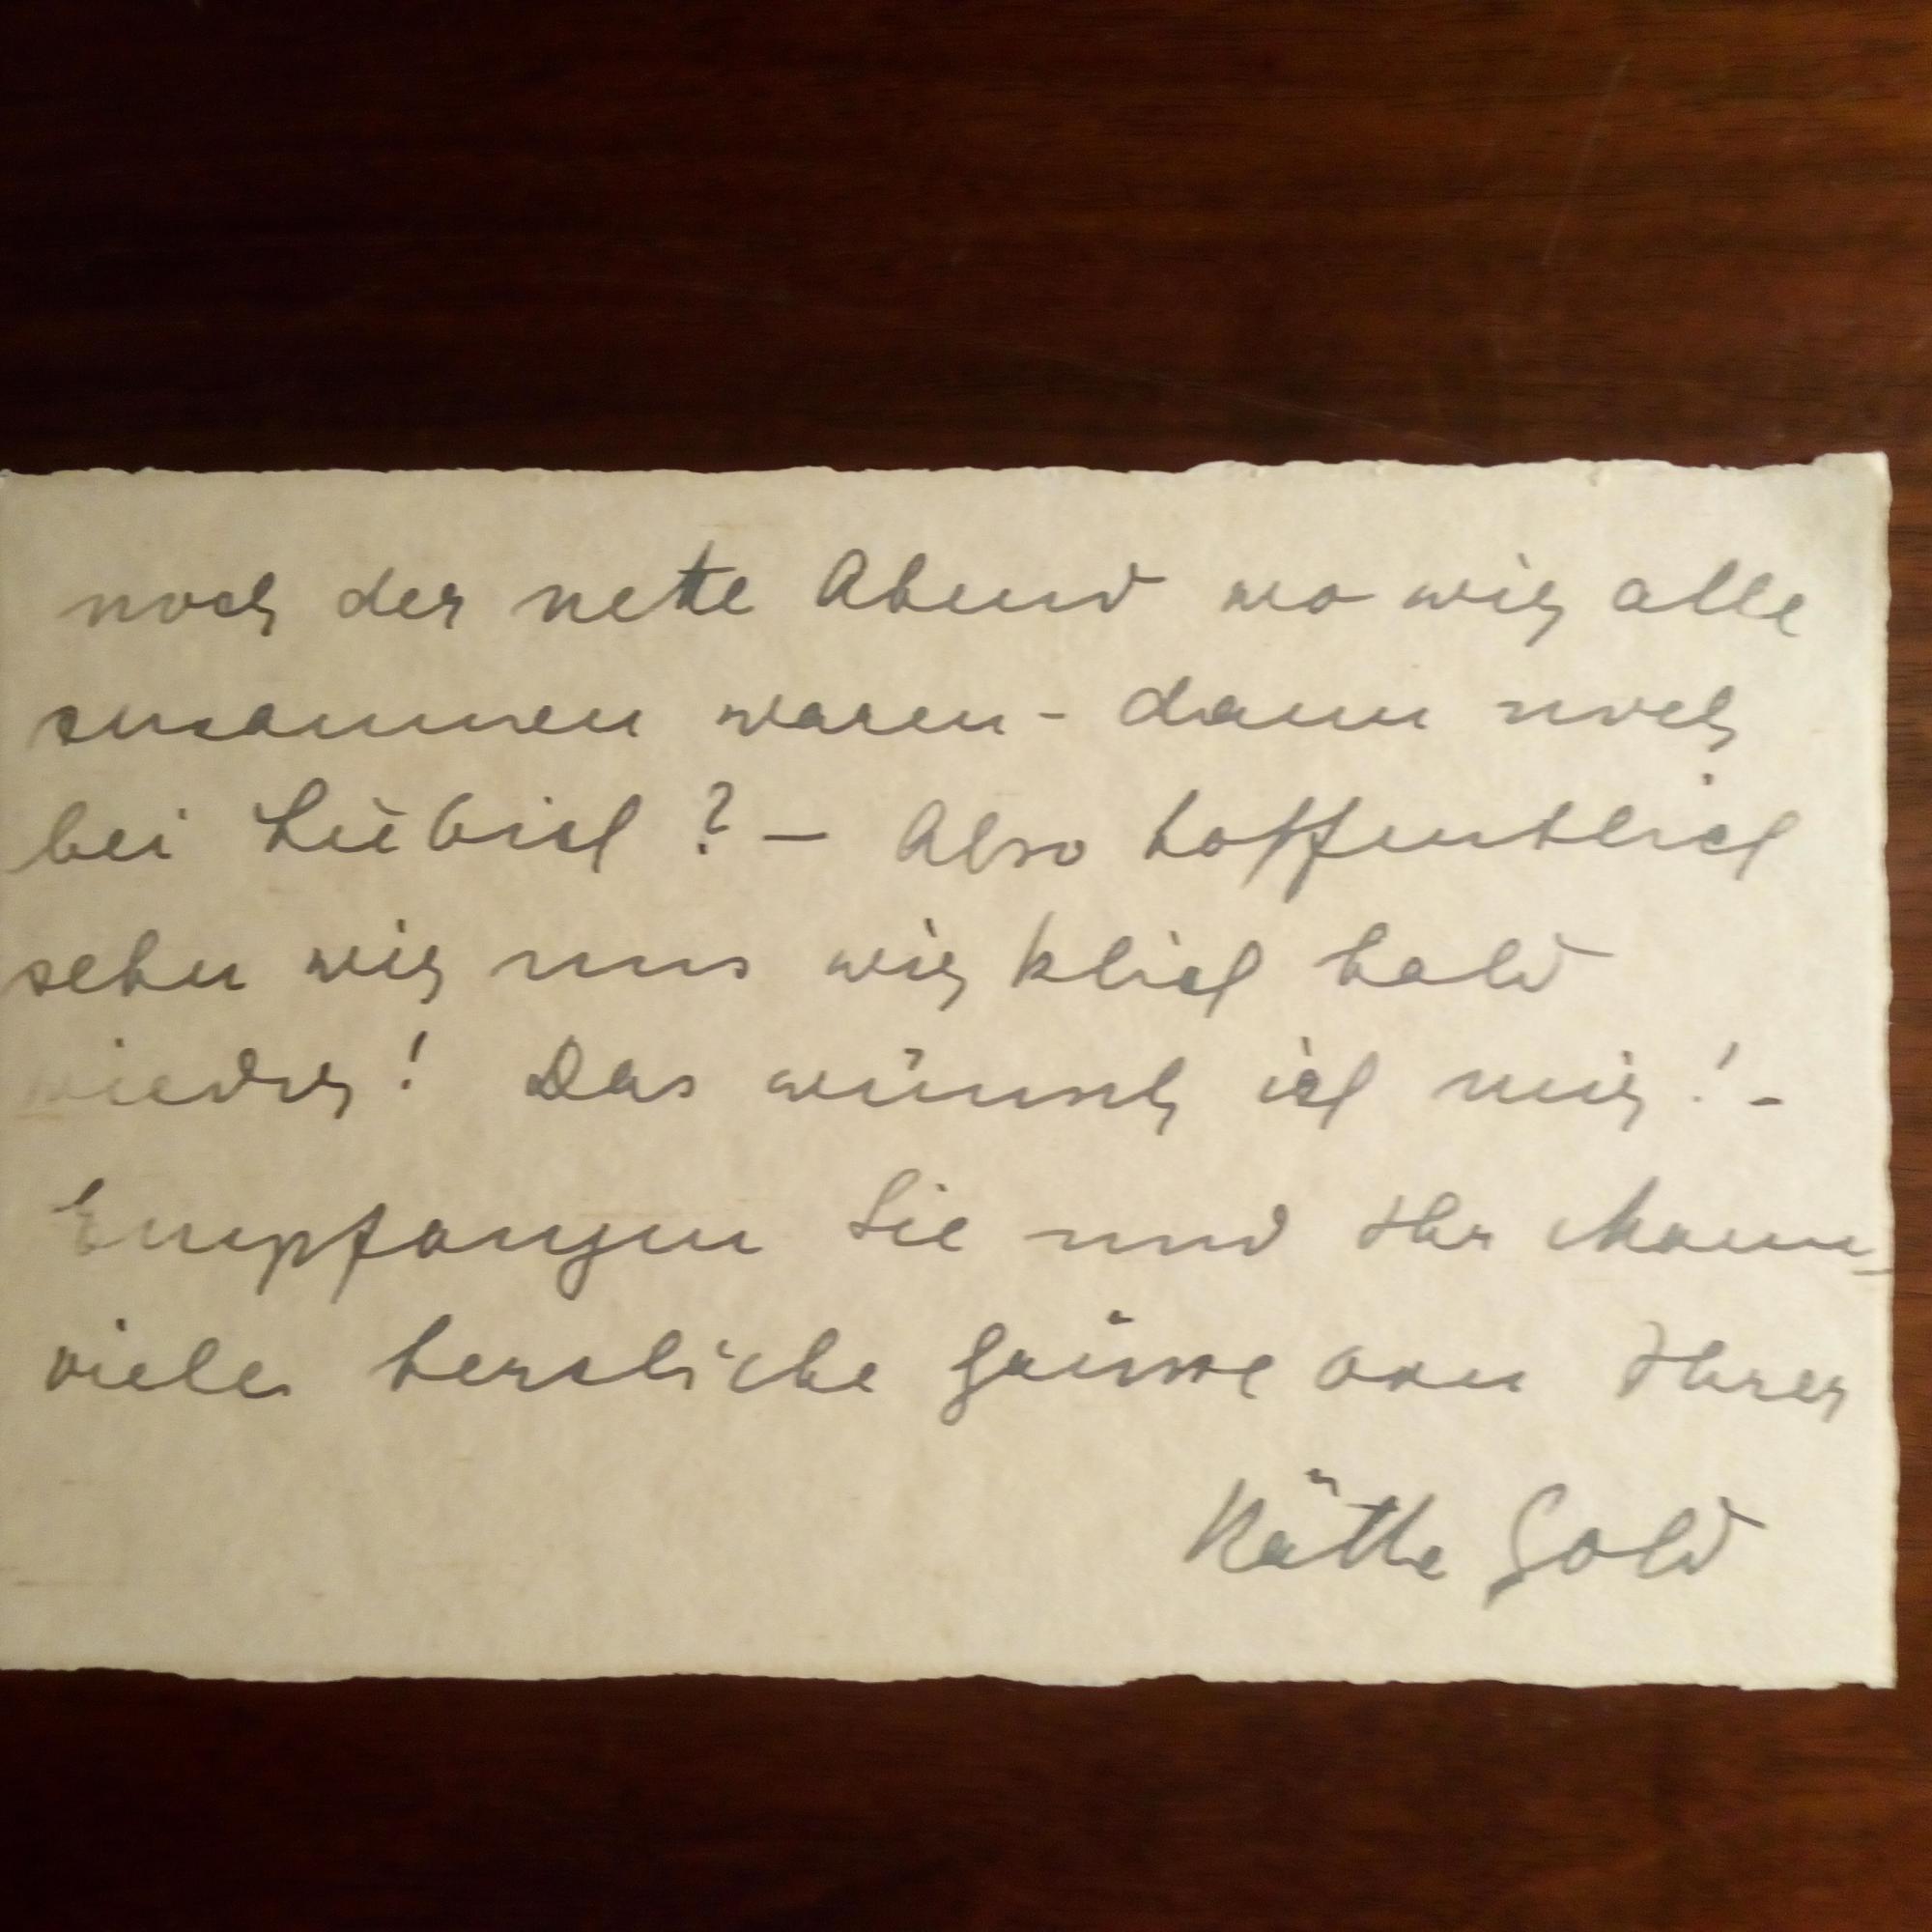 noch der nette Abend wo wir alle
zusammen waren - dann noch
bei Lübich ? — Also hoffentlich
sehn wir uns wirklich bald
wieder! Das wünsch ich mir! -
Empfangen Sie und Ihr Mann,
viele herzliche Grüsse von Ihrer
Käthe Gold